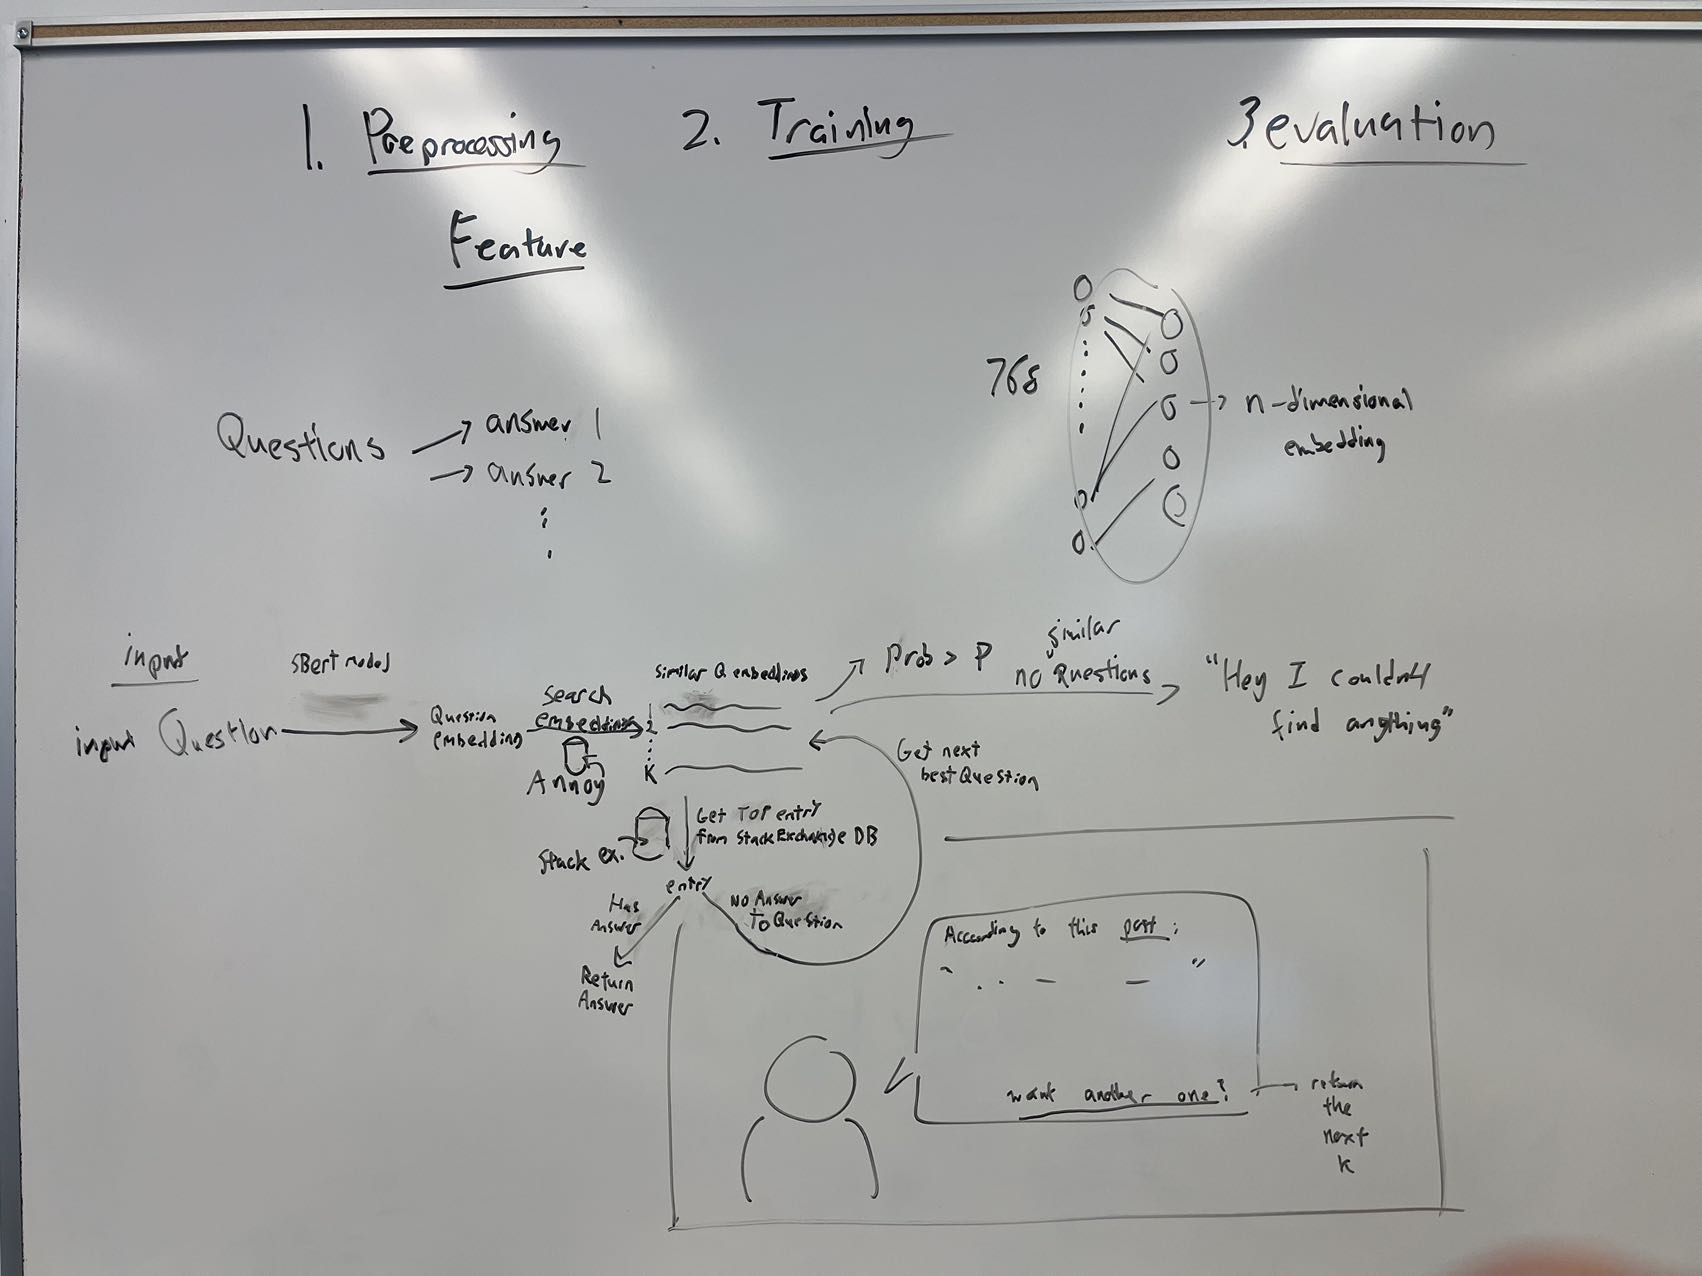 1. Preprocessing
2. Training
3. evaluation
Feature
768
n-dimensional
embedding
Questions
answer 1
answer 2
input
SBert model
input Question
Question
embedding
Search
embeddings
Annoy
Similar Q embeddings
1
2
K
Prob > P
similar
no Questions
"Hey I couldn't
find anything"
Get next
best Question
Get TOP entry
from StackExchange DB
Stack ex.
entry
Has
Answer
No Answer
To Question
Return
Answer
According to this post:
want another one?
return
the
next
k